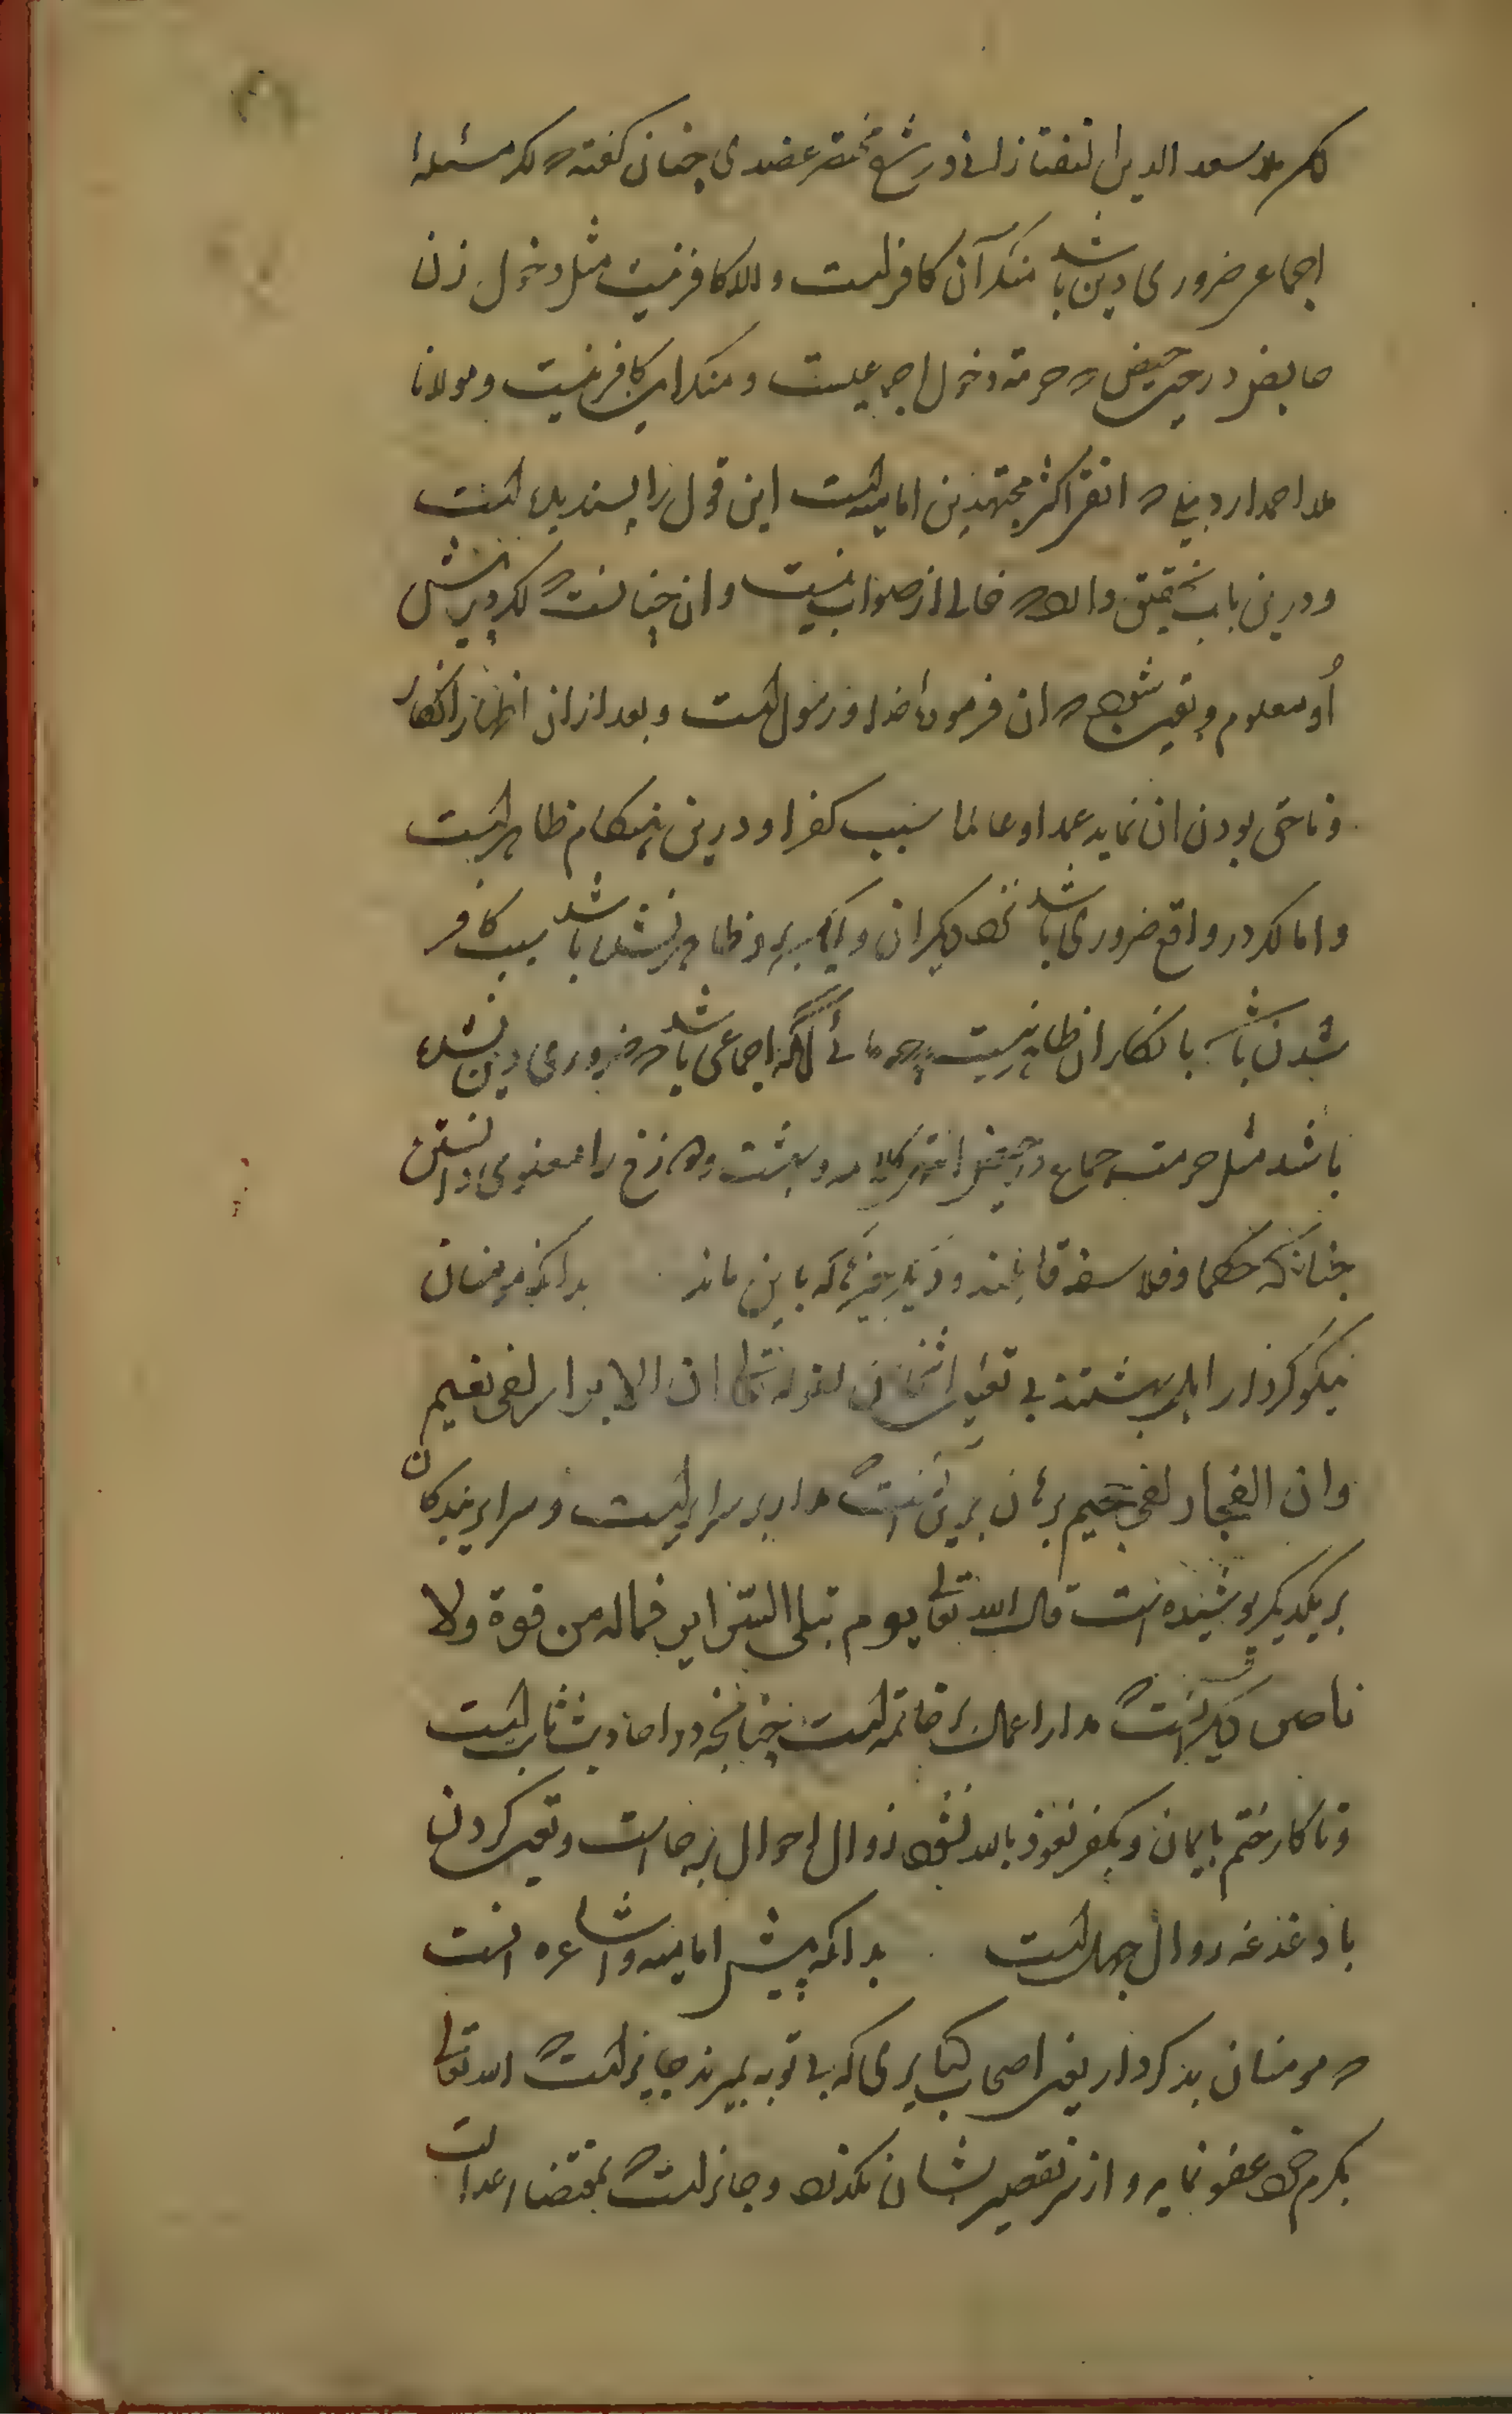 ملا سعد الدین تفتازانی در شرح مختصر عضدی چنان گفته که اگر مسئلهٔ
اجماعی ضروری دین باشد منکر آن کافر است و الا کافر نیست مثل دخول زن
حایض در حین حیض که حرمة دخول اجماعیست و منکر این کافر نیست و مولانا
ملا احمد اردبیلی که افقه اکثر مجتهدین امامیه است این قول را پسندیده است
و درین باب تحقیق دارد که خالی از صواب نیست و آن چنانست که اگر در پیش
او معلوم و یقین شود که آن فرمودهٔ خدا و رسول است و بعد از آن اظهار انکار
و ناحق بودن آن نماید عمدا و عالما سبب کفر او درین هنگام ظاهر است
و اما اگر در واقع ضروری باشد نزد دیگران و لیکن برو ظاهر نشده باشد سبب کافر
شدن باشد بانکار آن ظاهر نیست چه جائی آنکه اجماعی باشد که ضروری دین نشده
باشد مثل حرمت جماع در حیض و بهشت و دوزخ را معنوی دانستن
چنانکه حکما و فلاسفه قائلند و دیگر چیزها که باین ماند بدانکه مومنان
نیکوکردار اهل بهشتند بی تعیین اشخاص لقوله تعالی ان الابرار لفی نعیم
وان الفجار لفی جحیم برهان برین آنست که مدار بر سرایر است و سرایر بندگان
بر یکدیگر پوشیده است قال الله تعالی یوم تبلی السرایر فماله من قوة ولا
ناصر دیگر آنست که مدار اعمال بر خاتمه است چنانچه در احادیث ثابت است
و تا کار ختم بایمان و بکفر نعوذ بالله نشود زوال احوال برجاست و تعین کردن
با دغدغه زوال جهل است بدانکه پیش امامیه و اشاعره آنست
که مومنان بدکردار یعنی اصحاب کبایری که بی توبه بمیرند جایز است که الله تعالی
بکرم خود عفو نماید و از سر تقصیر ایشان بگذرد و جایز است که بمقتضای عدالت